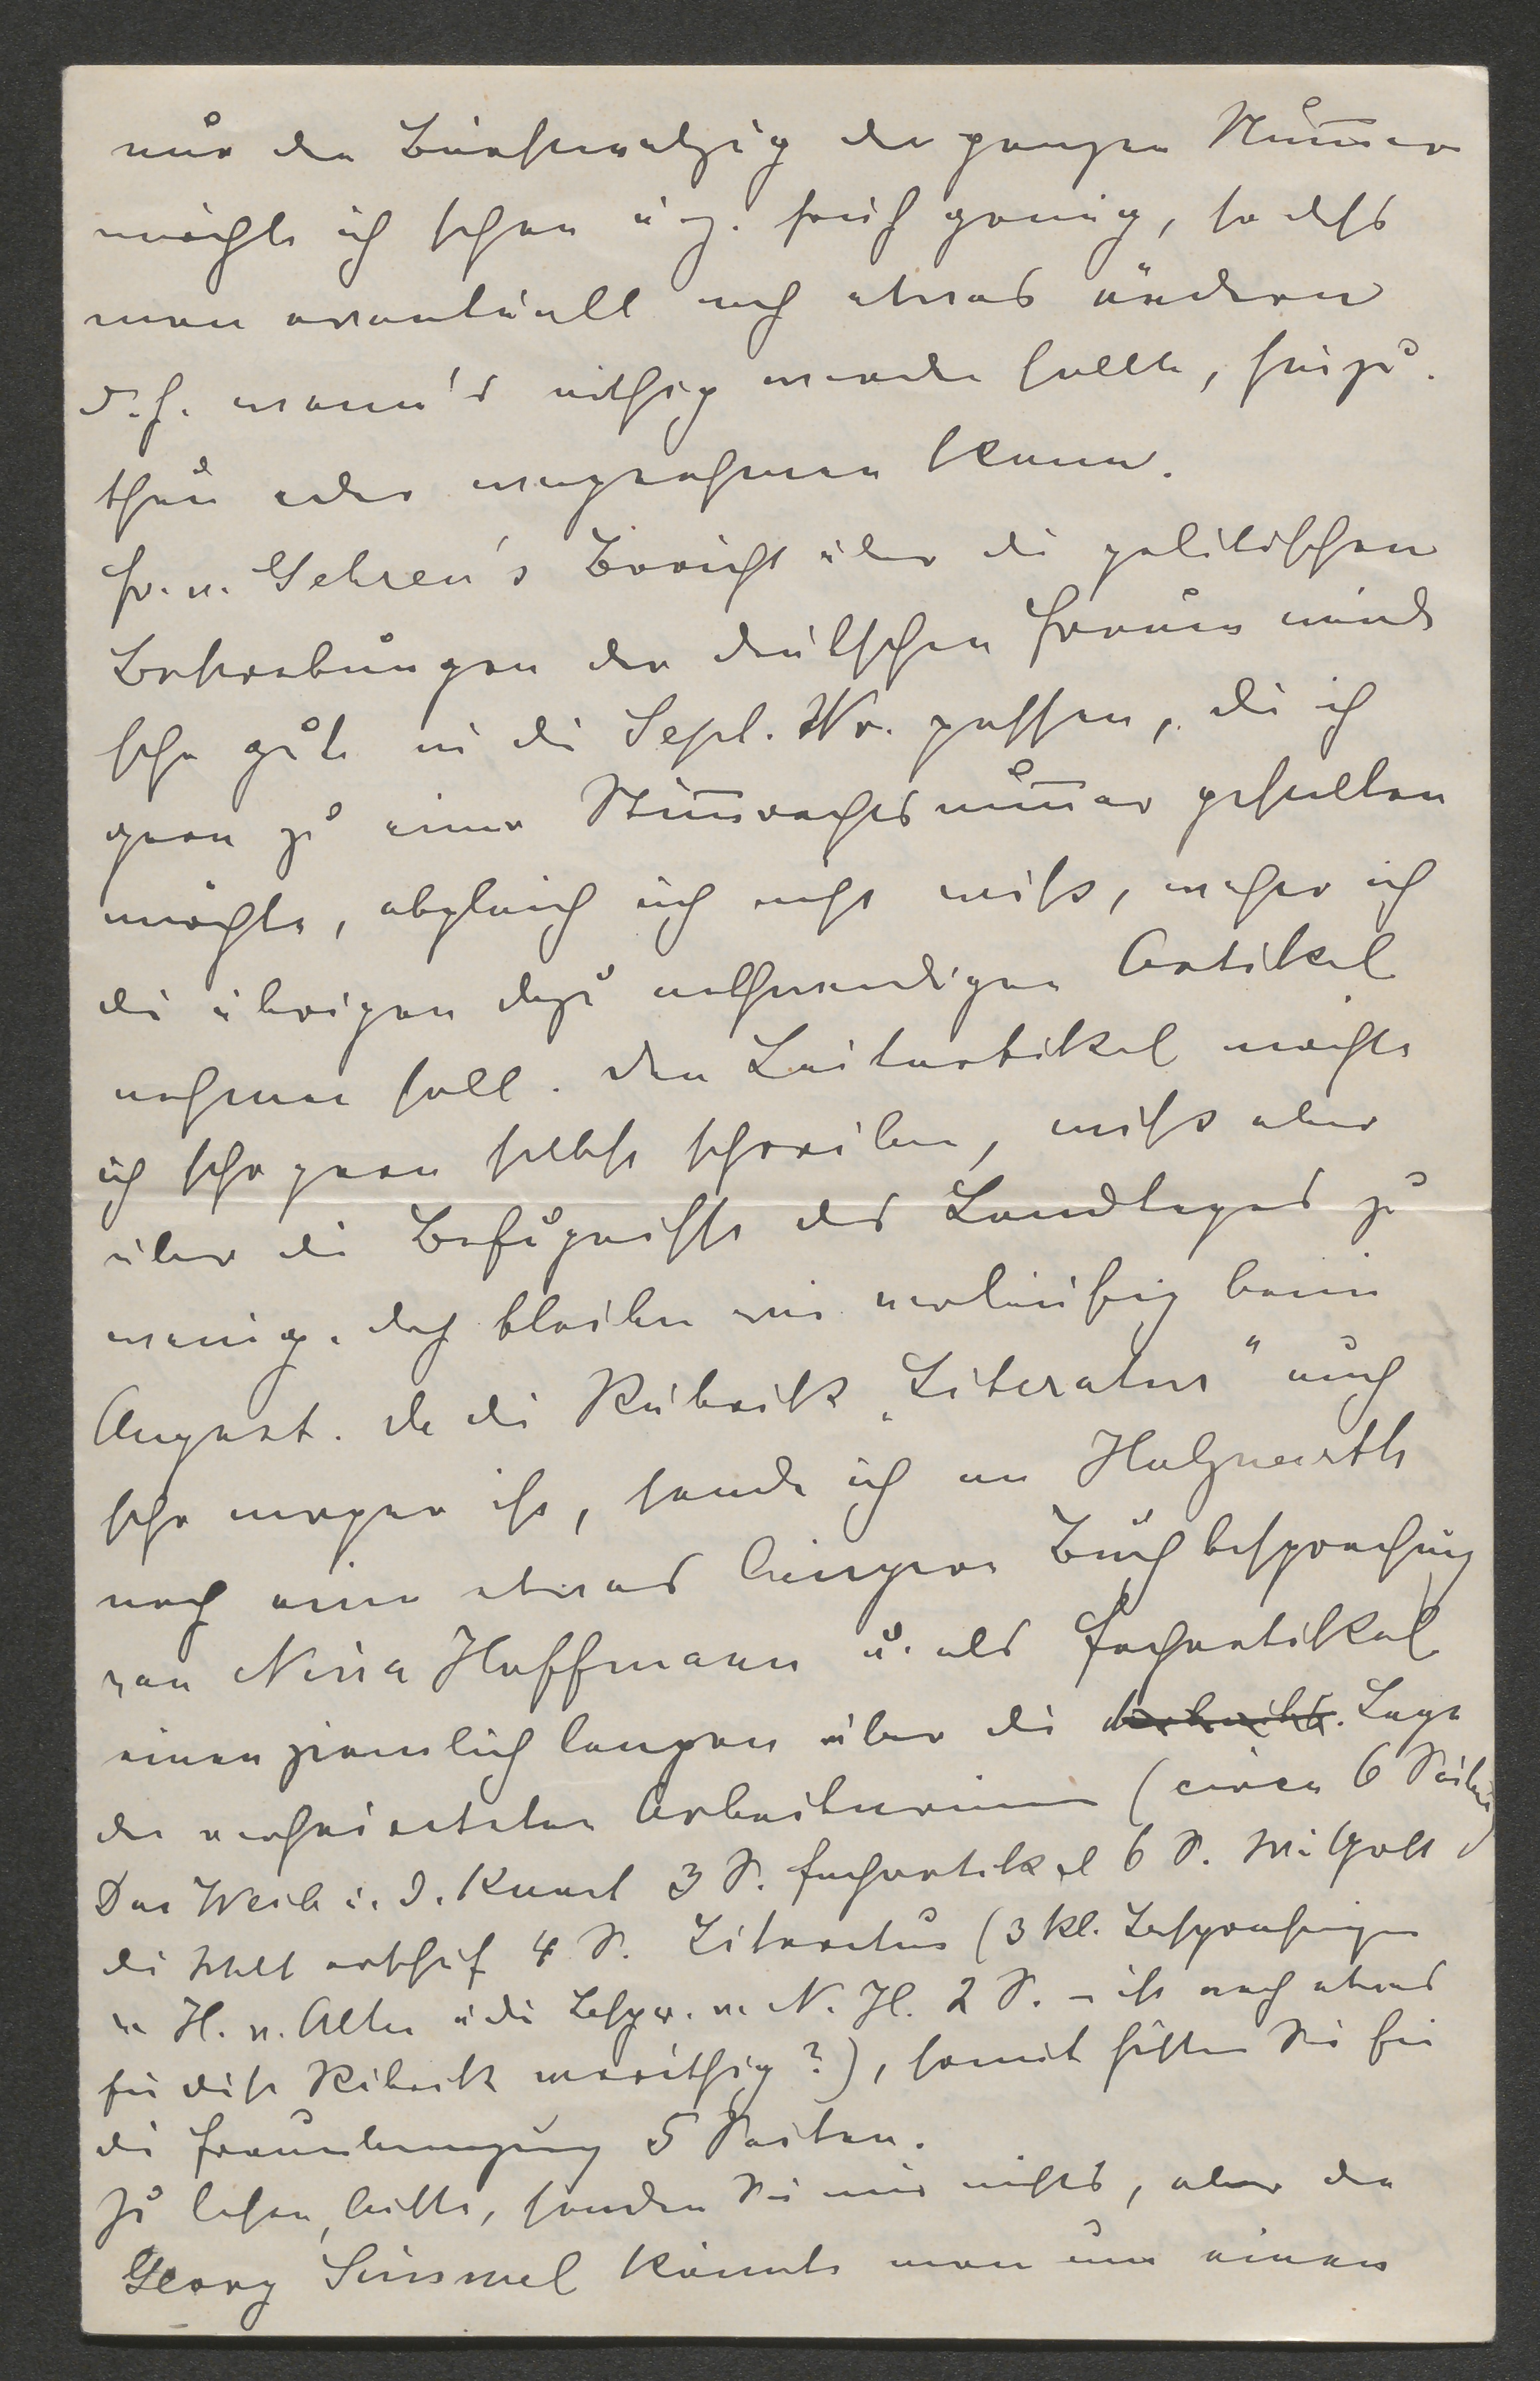 nur den Bürstenabzug der ganzen Nummer
möchte ich sehen u. z. früh genug, so dass
man eventuell noch etwas ändern
d. h. wenn's nöthig werden sollte, hinzu-
thun oder wegnehmen kann.
Fr. v. Gehren's Bericht über die politischen
Bestrebungen der deutschen Frauen wird
sehr gut in die Sept. Nr. passen, die ich
gern zu einer Stimmrechtsnummer gestalten
möchte, obgleich ich nicht weiß, woher ich
die übrigen dazu nothwendigen Artikel
nehmen soll. Den Leitartikel möchte
ich sehr gern selbst schreiben, weiß aber
über die Befugnisse des Landtages zu
wenig. Doch bleiben wir vorläufig beim
August. Da die Rubrik „Literatur" auch
sehr mager ist, sende ich an Holzwarth
noch eine etwas längere Buchbesprechung
von Nina Hoffmann u. als Fachartikel
einen ziemlich langen über die Lage
der verheirateten Arbeiterinnen (circa 6 Seiten)
Das Weib i. d. Kunst 3 S. Fachartikel 6 S. Mit Gott
die Welt erschuf 4 S. Literatur (3 kl. Besprechungen
v. H. v. Alten u die Bespr. v. N. H. 2 S. – ist noch etwas
für diese Rubrik vorräthig?), somit hätten Sie für
die Frauenbewegung 5 Seiten.
Zu lesen, bitte, senden Sie mir nichts, aber den
Georg Simmel könnte man um einen